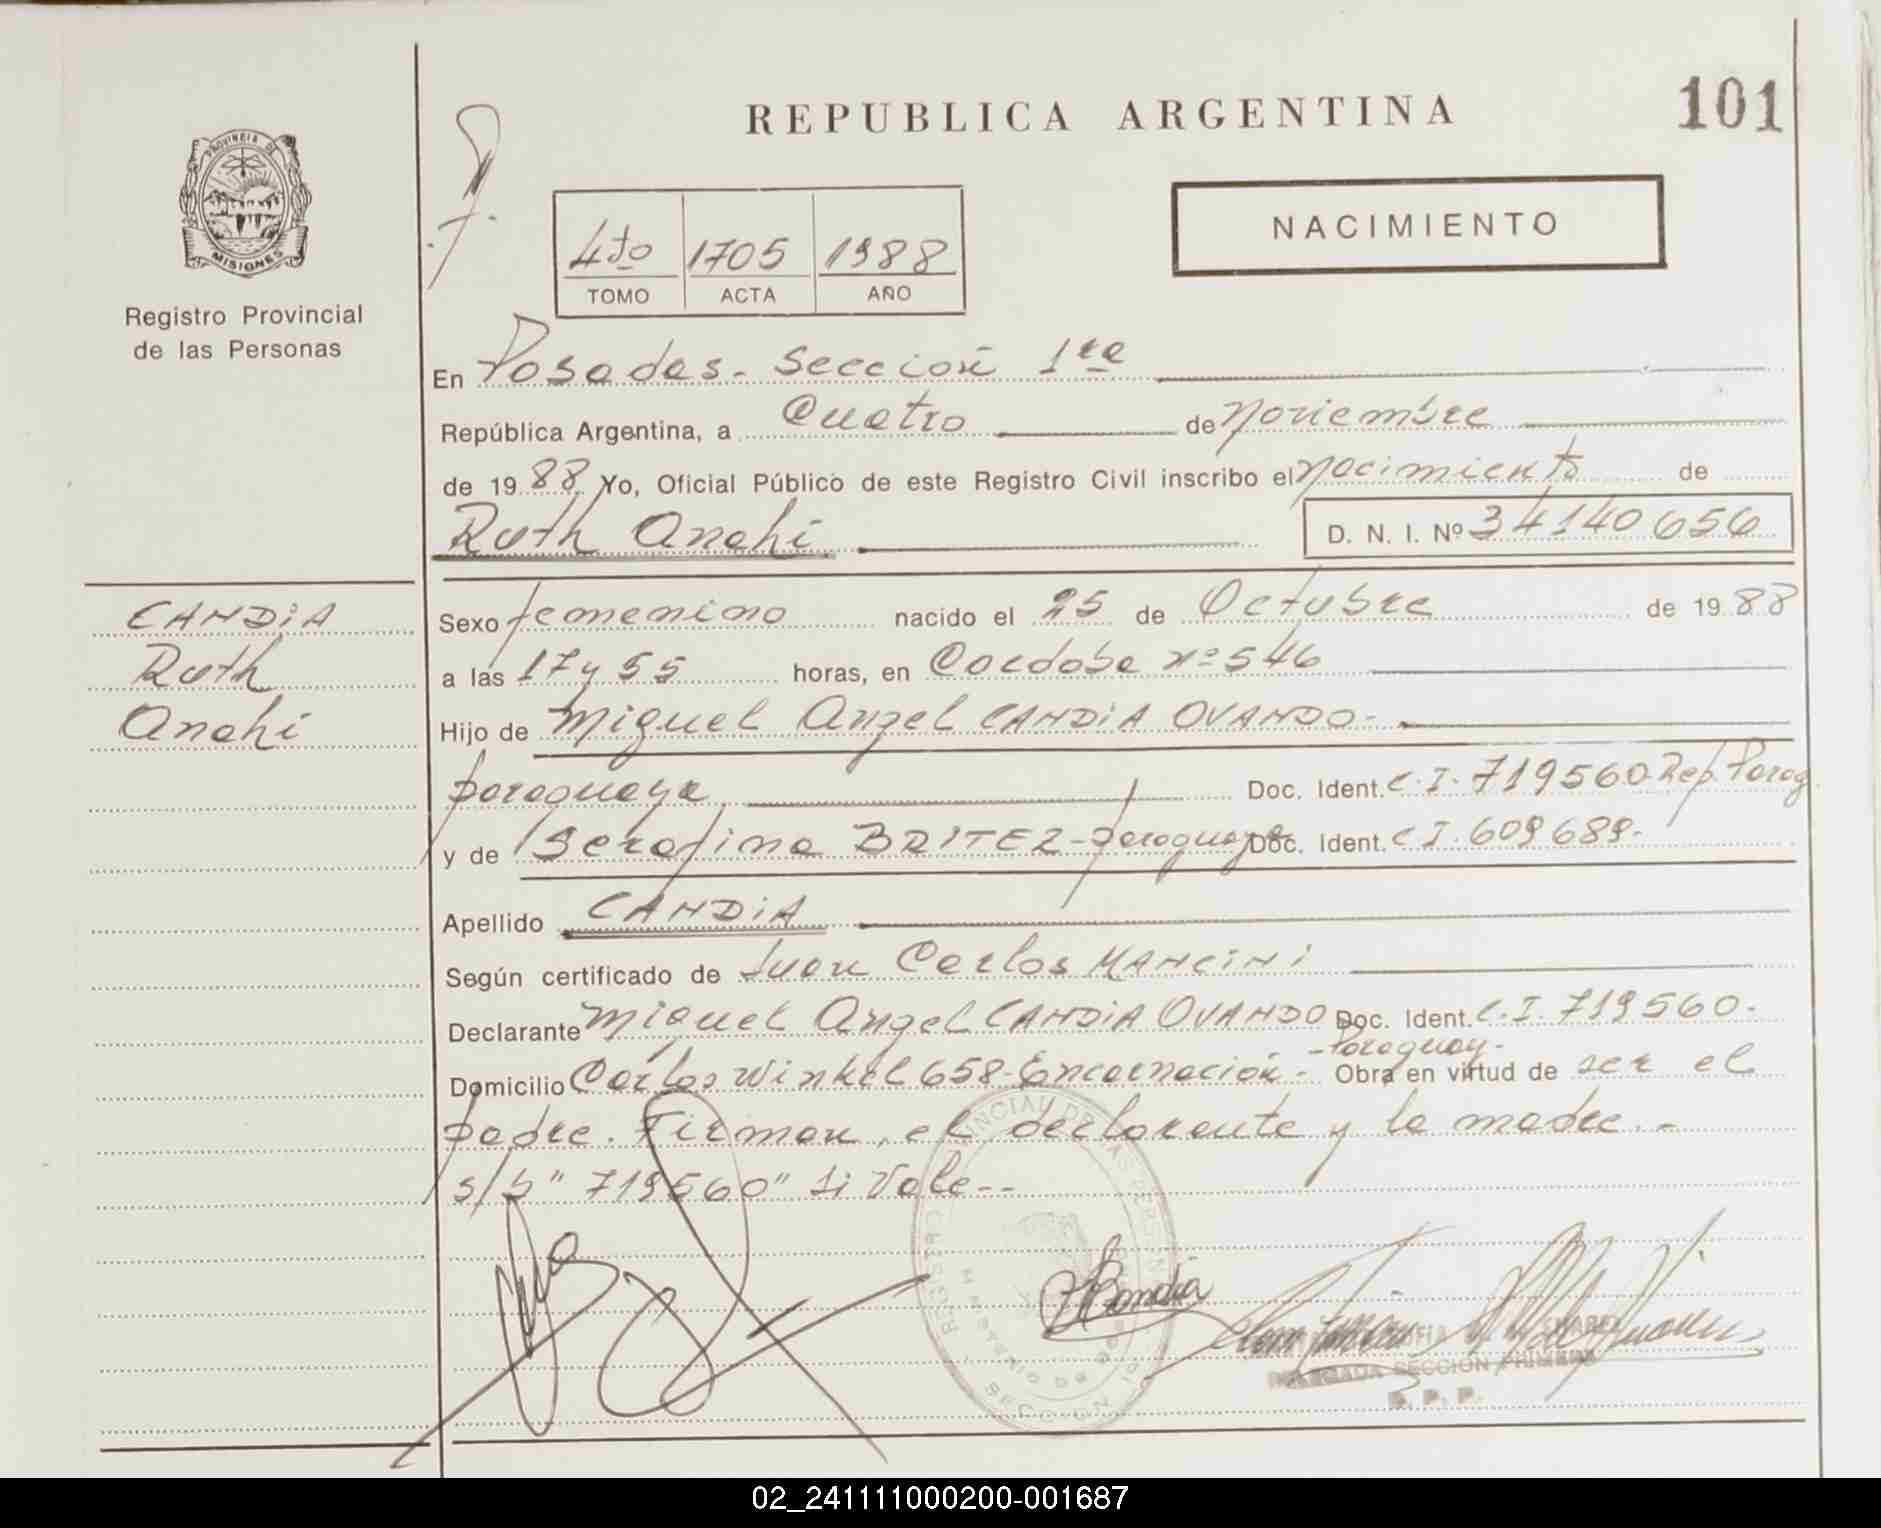 REPUBLICA ARGENTINA
101
PROVINCIA DE
MISIONES
Registro Provincial
de las Personas
4to 1705 1988
TOMO ACTA AÑO
NACIMIENTO
En Posadas - Sección 1ra
República Argentina, a Cuatro de Noviembre
de 19 88 Yo, Oficial Público de este Registro Civil inscribo el nacimiento de
Ruth Anahi D. N. I. Nº 34140656
CANDiA
Ruth
Anahi
Sexo femenino nacido el 25 de Octubre de 19 88
a las 17 y 55 horas, en Cordoba nº 546
Hijo de Miguel Angel CANDiA OVANDO -
paraguaya Doc. Ident. C.I. 719560 Rep. Parag
y de Serafina BRITEZ - paraguaya Doc. Ident. C.I. 609689.
Apellido CANDiA
Según certificado de Juan Carlos MANCINI
Declarante Miguel Angel CANDiA OVANDO Doc. Ident. C.I. 719560.
Domicilio Carlos Winkel 658 - Encarnación - Paraguay - Obra en virtud de ser el
padre. Firman, el declarante y la madre. -
s/b "719560" Si Vale --
SECCION 1º
DELEGADA SECCION PRIMERA
R. P. P.
02_241111000200-001687